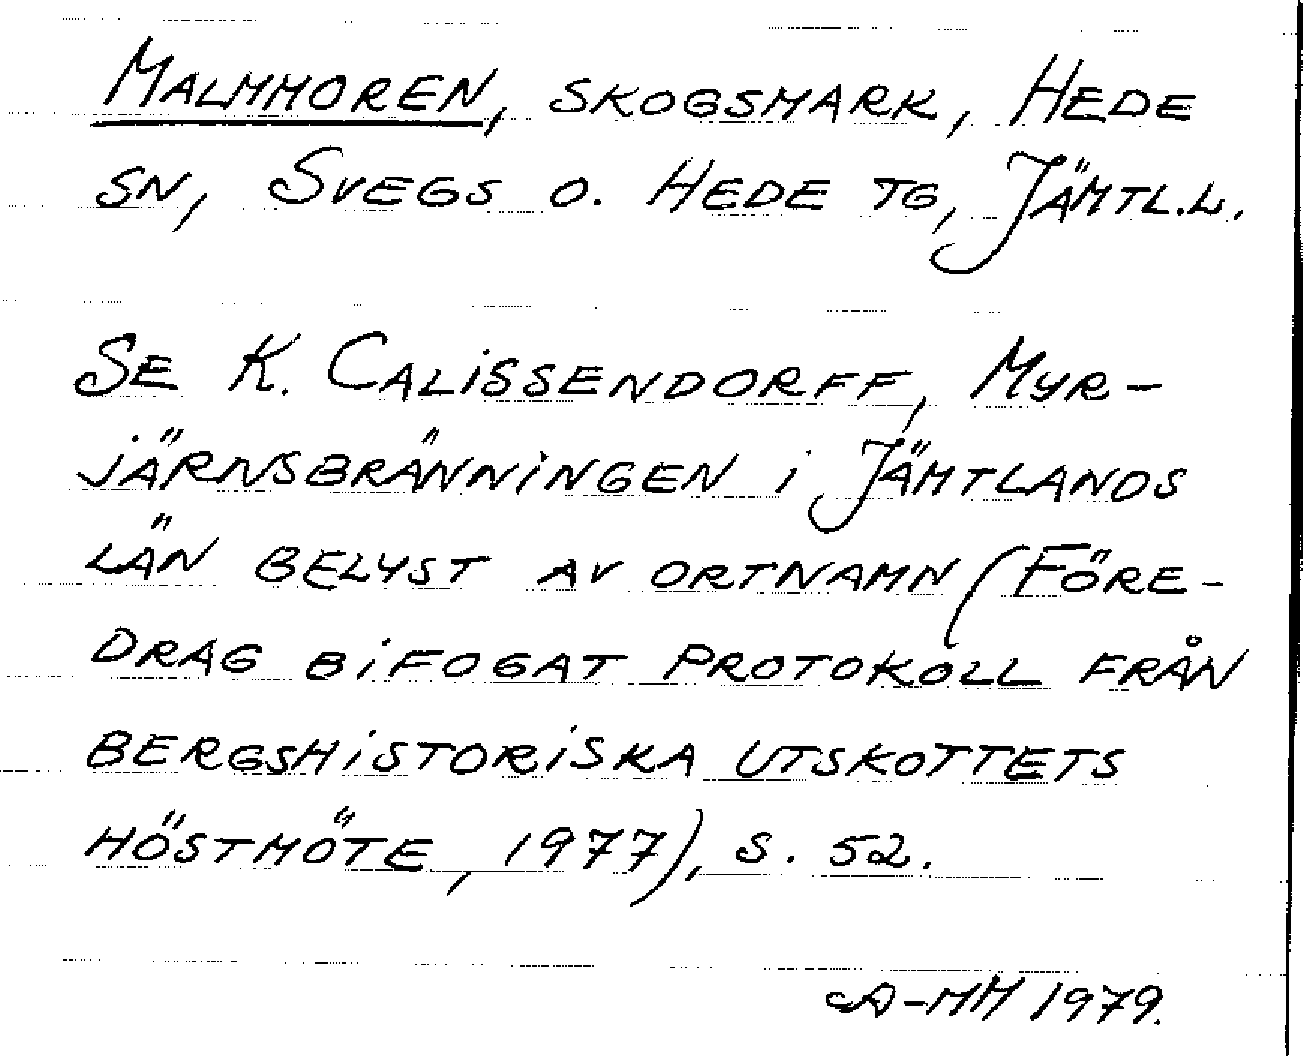 MALMMOREN, SKOGSMARK, HEDE
SN, SVEGS O. HEDE TG, JÄMTL.L.
SE K. CALISSENDORFF, MYR-
JÄRNSBRÄNNINGEN I JÄMTLANDS
LÄN BELYST AV ORTNAMN (FÖRE-
DRAG BIFOGAT PROTOKOLL FRÅN
BERGSHISTORISKA UTSKOTTETS
HÖSTMÖTE, 1977), S. 52.
A-MM 1979.